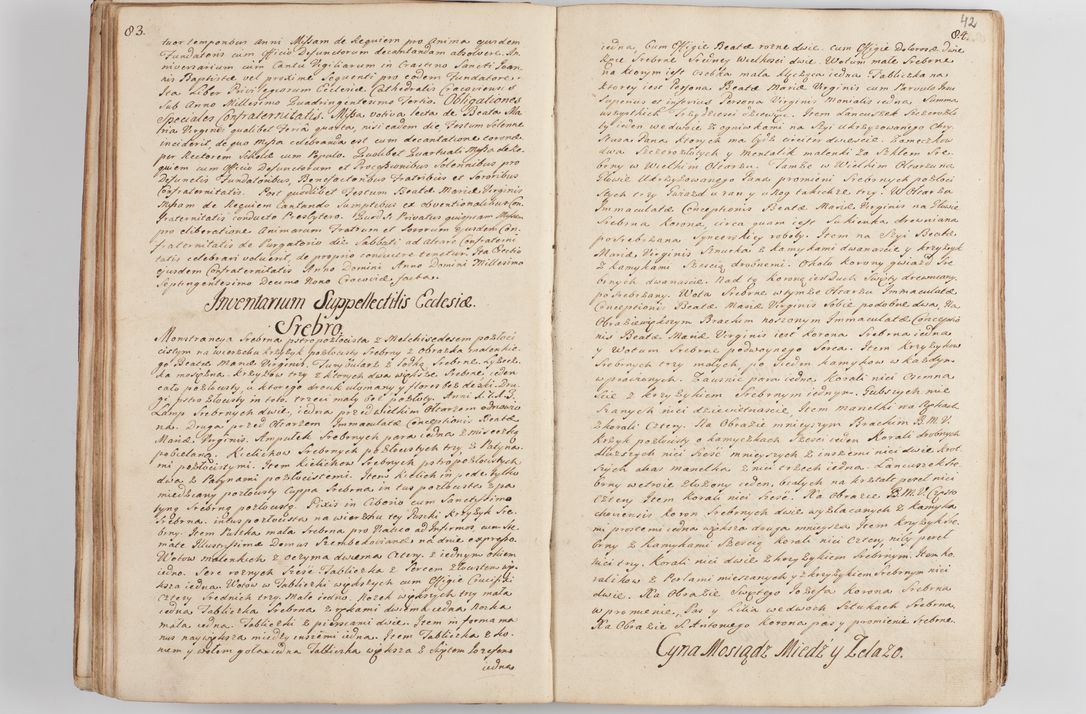 83.
tuor temporibus Anni Missam de Requiem pro Anima ejusdem
Fundatoris cum Officio Defunctorum decantandam absolvere. An-
niversarium cum Cantu Vigiliarum in Crastino Sancti Joan-
nis Baptistæ vel proxime Sequenti pro eodem Fundatore
Ita Liber Privilegiorum Ecclesiæ Cathedralis Cracoviensis
Sub Anno Millesimo Quadringentesimo Tertio. Obligationes
Speciales Confraternitatis. Missa votiva lecta de Beata Ma-
ria Virgine qualibet Feria quarta, nisi eadem die Festum Solemne
inciderit, de quo Missa celebranda est cum decantatione coronæ
per Rectorem Scholæ cum Populo. Quolibet Quartuali Missa de Re-
quiem cum Officio Defunctorum et Processionibus Solennibus pro
Defunctis Fundatoribus, Benefactoribus Fratribus et Sororibus
Confraternitatis. Post quodlibet Festum Beatæ Mariæ Virginis
Missam de Requiem Cantando Sumptibus ex obventionalibus Con-
fraternitatis conducto Presbytero. Quod Si Privatus quispiam Missam
pro liberatione Animarum Fratrum et Sororum ejusdem Con-
fraternitatis de Purgatorio die Sabbati ad Altare Confrater-
tatis celebrari voluerit, de proprio conducere tenetur. Ita Erectio
ejusdem Confraternitatis Anno Domini Anno Domini Millesimo
Septingentesimo Decimo Nono Cracoviæ facta.
Inventarium Suppellectilis Ecclesiæ.
Srebro.
Monstrancya Srebrna pstropozłocista z Melchisedesem pozłoci
cistym na wierzchu krzyżyk pozłocisty Srebrny z Obrazka
go Beatæ Mariæ Virginis. Turybularz z łodką Srebrne. Łyżecz-
ka mosiężna. Krzyżów trzy z ktorych dwa większe Srebrne ieden
cało pozłocisty, u ktorego drock ułomany y flores bez deski. Dru-
gi pstrozłocisty in toto. trzeci mały bez pozłoty.
Lamp Srebrnych dwie, iedna przed wielkim Ołtarzem
na. Druga przed Ołtarzem Immaculatæ Conceptionis Beatæ
Mariæ Virginis. Ampułek Srebrnych para iedna z miseczką
pobielana. Kielichow Srebrnych pozłocistych trzy z Patyna-
mi pozłocistymi. Item kielichow Srebrnych pstropozłocistych
dwa z Patynami pozłocistemi. Item kielich in pede tylko
miedziany pozłocisty Cuppa Srebrna intus pozłocista z pa-
tyną Srebrną pozłocistą. Pixis in Ciborio cum Sanctissimo
Srebrna, intus pozłocista na wierzchu tey Puszki Krzyżyk Sre-
brny. Item Puszka mała Srebrna pro Viatico ad Infirmos cum Ste-
mate Illustrissimæ Domus Szembekoianæ na dnie expresso.
Wotow malenkich z oczyma dwiema Cztery, z iednym okiem
iedno. Serc roznych Sześć. Tabliczka z Sercem
ksza iedna. Wotow w Tabliczki większych cum Effigie Crucifixi
Cztery Srednich trzy. Małe iedno. Nożek większych trzy mała
iedna. Tabliczka Srebrna z rękami dwiema iedna Nożka
mała iedna. Tabliczki z piersiami dwie. Item in forma ma
nus naywiększa między inszemi iedna. Item Tabliczka z ko-
niem y wołem gołowa iedna Tabliczka większa z Świętem Iozefem
iedna
42
84.
iedna, Cum Effigie Beatæ rożne dwie. cum Effigie Dolorosæ Dwie
Ręce Srebrne Sredney wielkości dwie. Wotum małe Srebrne
na ktorym iest osobka mała klęcząca iedna. Tabliczka na
ktorey iest Persona Beatæ Mariæ Virginis cum Parvulo Jesu
superius et inferius Persona Virginis Monialis iedna. Summa
wszystkich Trzydzieści dziewięć. Item Łancuszek Szczerozło-
ty ieden we dwoie z ogniwkami na Szyi ukrzyżowanego Chry-
stusa Pana ktorych ma bydź ćwierć dwaście. Zameczkow
dwa Szczerozłotych y Mentalik malenki za Szkłem Sre-
brny w Wielkim Ołtarzu. Tamże w Wielkim Ołtarzu na
Głowie Ukrzyżowanego Pana promieni Srebrnych pozłoci-
stych trzy Gwiazd u rąn y u Nog takichże trzy. W Ołtarzu
Immaculatæ Conceptionis Beatæ Mariæ Virginis na Głowie
Srebrna korona, circa quam iest Sukienka drewniana
posrebrzana Snycerskiey roboty. Item na Szyi Beatæ
Mariæ Virginis Sznurka z kamykami dwanaście y krzyżyk
z kamykami Sześcią drobnemi. Około korony gwiazd Sre-
brnych dwanaście. Nad tą koroną iest Duch Swięty drewniany
posrebrzany. Wota Srebrne w tymże Ołtarzu Immaculatæ
Conceptionis Beatæ Mariæ Virginis Sobie podobne dwa. Na
Obrazie większym Brachim noszonym Immaculatæ Conceptio-
nis Beatæ Mariæ Virginis iest korona Srebrna iedna
y Wotum Srebrne podwoynego Serca. Item Krzyżykow
Srebrnych trzy małych, po Siedem kamykow w każdym
wprawionych. Zausnic para iedna. Korali nici Osiemna-
ście z krzyżykiem Srebrnym iednym. Gubszych nie
nici dziewiętnaście. Item manelki na Rękach
z korali Cztery. Na Obrazie mnieyszym Brachim B.M.V.
Krzyż pozłocisty o kamyczkach Sześci ieden Korali drobnych
dłuższych nici Sześć mnieyszych z inszemi nici dwie krot-
szych alias manelka z nici trzech iedna. Łancuszek Sre-
brny we troie złożony ieden, białych na kształt pereł nici
Cztery. Item korali nici Sześć. Na Obrazie B.M.V. Często
choviensis koron Srebrnych dwie wyzłacanych z kamyka-
mi prostemi iedna większa druga mnieysza. Item krzyżyk Sre-
brny z kamykami Sześcią. Korali nici Cztery nity pereł
nici trzy. Korali nici dwie z krzyżykiem Srebrnym. Item ko-
ralikow z Perłami mieszanych y z krzyżykiem Srebrnym nici
dwie. Na Obrazie Swiętego Jozefa korona Srebrna
w promienie, Pas y Lilia we dwoch Sztukach Srebrna.
Na Obrazie S. Antoniego korona pas y promienie Srebrne.
Cyna Mosiądz Miedź y Żelazo.